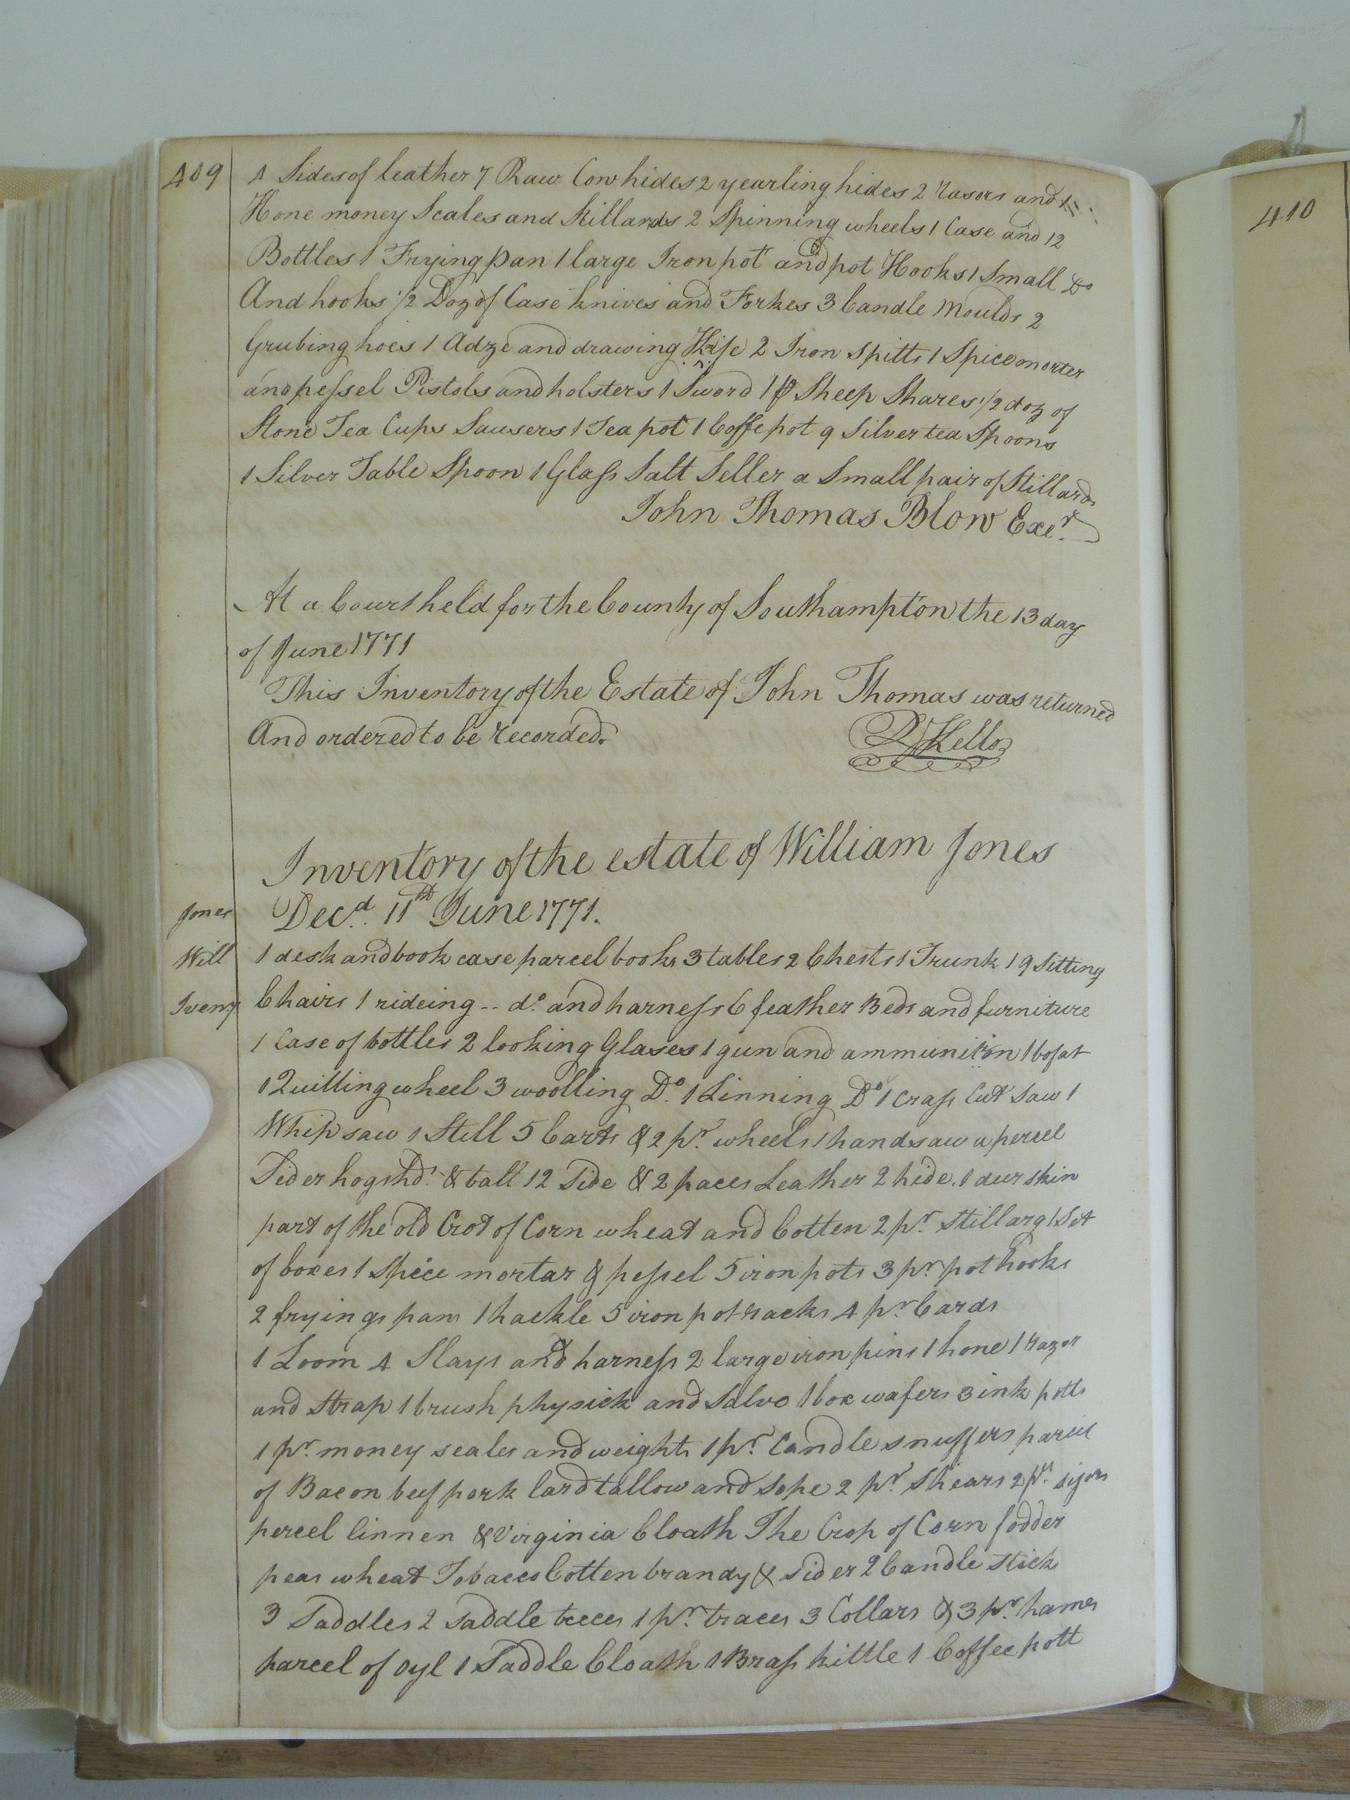 409
4 Sides of leather 7 Raw Cow hides 2 yearling hides 2 rasors and 1
Hone money Scales and Stillards 2 Spinning wheels 1 Case and 12
Bottles 1 Frying pan 1 large Iron pot and pot Hooks 1 Small Do
And hooks 1/2 Doz of Case knives and Forkes 3 Candle Moulds 2
Grubing hoes 1 Adze and drawing Knife 2 Iron Spitts 1 Spice morter
and pessel Pistols and holsters 1 Sword 1 p Sheep Shares 1/2 doz of
Stone Tea Cups Sausers 1 Tea pot 1 Coffe pot 9 Silver tea Spoons
1 Silver Table Spoon 1 Glass Salt Seller a Small pair of Stillards
John Thomas Blow Exer.
At a Court held for the County of Southampton the 13 day
of June 1771
This Inventory of the Estate of John Thomas was returned
And ordered to be recorded.
Kello
Inventory of the estate of William Jones
Jones Decd. 11th June 1771.
Will 1 desk and book case parcel books 3 tables 2 Chests 1 Trunk 19 Sitting
Iveny Chairs 1 rideing -- do. and harness 6 feather Beds and furniture
1 Case of bottles 2 looking Glases 1 gun and ammunition 1 bofat
1 Quilling wheel 3 woolling Do. 1 Linning Do 1 Crass Cut Saw 1
Whip saw 1 Still 5 Carts & 2 pr. wheels 1 hand saw a percel
Sider hogshd. & tall 12 Side & 2 paces Leather 2 hide. 1 deer skin
part of the old Crot of Corn wheat and Cotten 2 pr. Stillarg 1 Set
of boxes 1 Spice mortar & pessel 5 iron pots 3 pr pot hooks
2 fryings pans 1 hackle 5 iron pot racks 4 pr Cards
1 Loom 4 Slays and harness 2 large iron pins 1 hone 1 razor
and Strap 1 brush physick and Salvo 1 box wafers 3 ink potts
1 pr. money scales and weights 1 pr. Candle snuffers parcel
of Bacon beef pork lard tallow and Sope 2 pr Shears 2 pr. sizors
percel linnen & Virginia Cloath The Crop of Corn fodder
peas wheat Tobacco Cotten brandy & Sider 2 Candle stick
3 Saddles 2 saddle trees 1 pr. traces 3 Collars & 3 pr. hames
parcel of oyl 1 Saddle Cloath 1 Brass kittle 1 Coffee pott
410